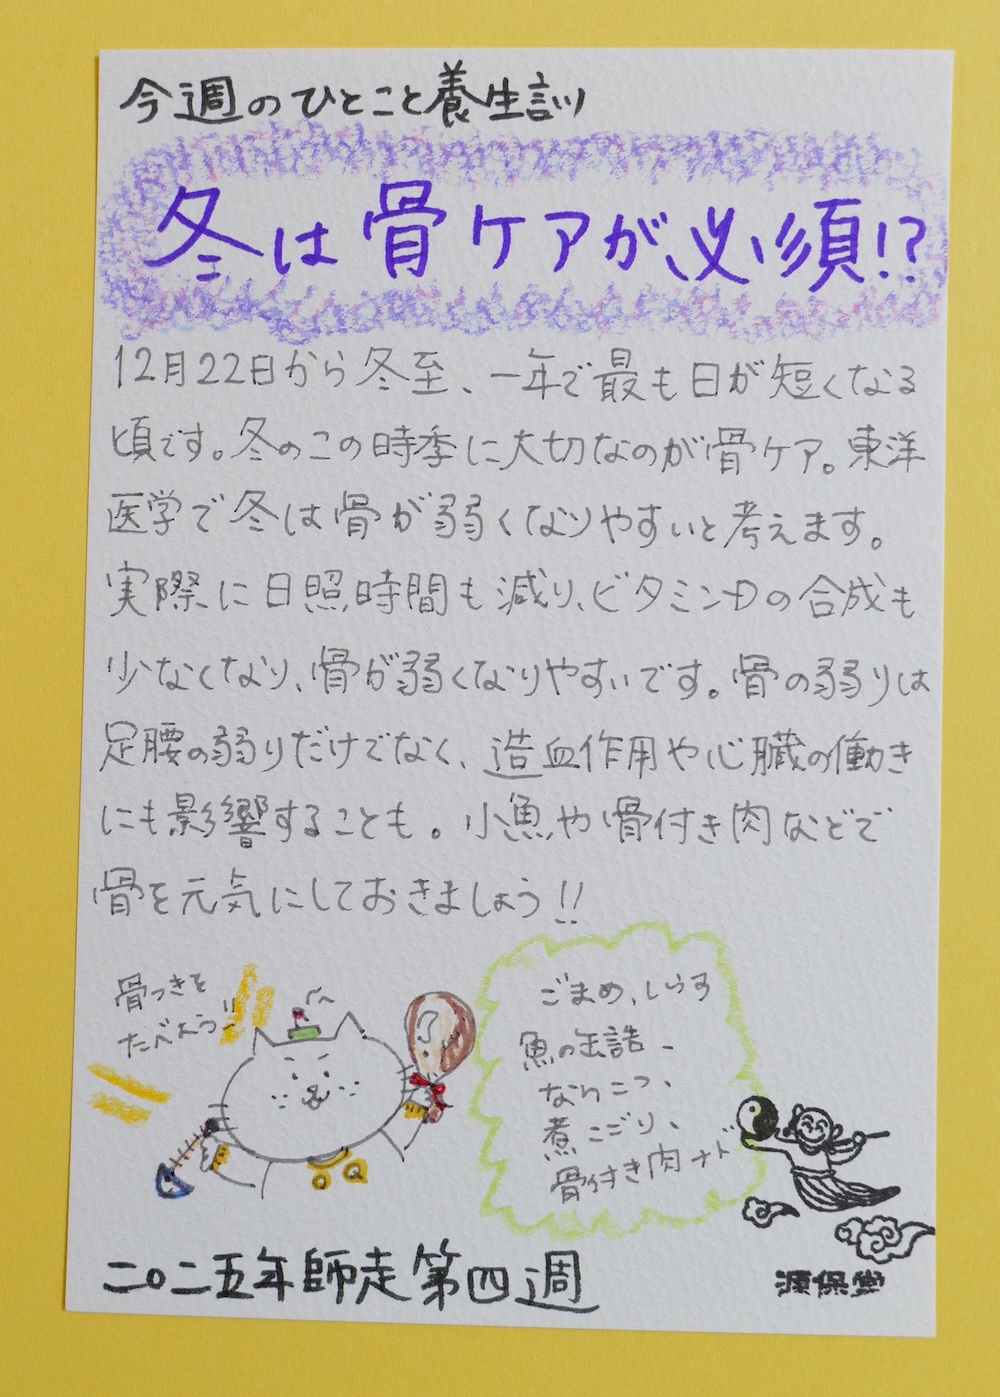 今週のひとこと養生訓
冬は骨ケアが必須!?
12月22日から冬至、一年で最も日が短くなる
頃です。冬のこの時季に大切なのが骨ケア。東洋
医学で冬は骨が弱くなりやすいと考えます。
実際に日照時間も減り、ビタミンDの合成も
少なくなり、骨が弱くなりやすいです。骨の弱りは
足腰の弱りだけでなく、造血作用や心臓の働き
にも影響することも。小魚や骨付き肉などで
骨を元気にしておきましょう!!
骨つきを
たべよう!!
ごまめ、しらす
魚の缶詰、
なんこつ、
煮こごり、
骨付き肉ナド
二〇二五年師走第四週
源保堂